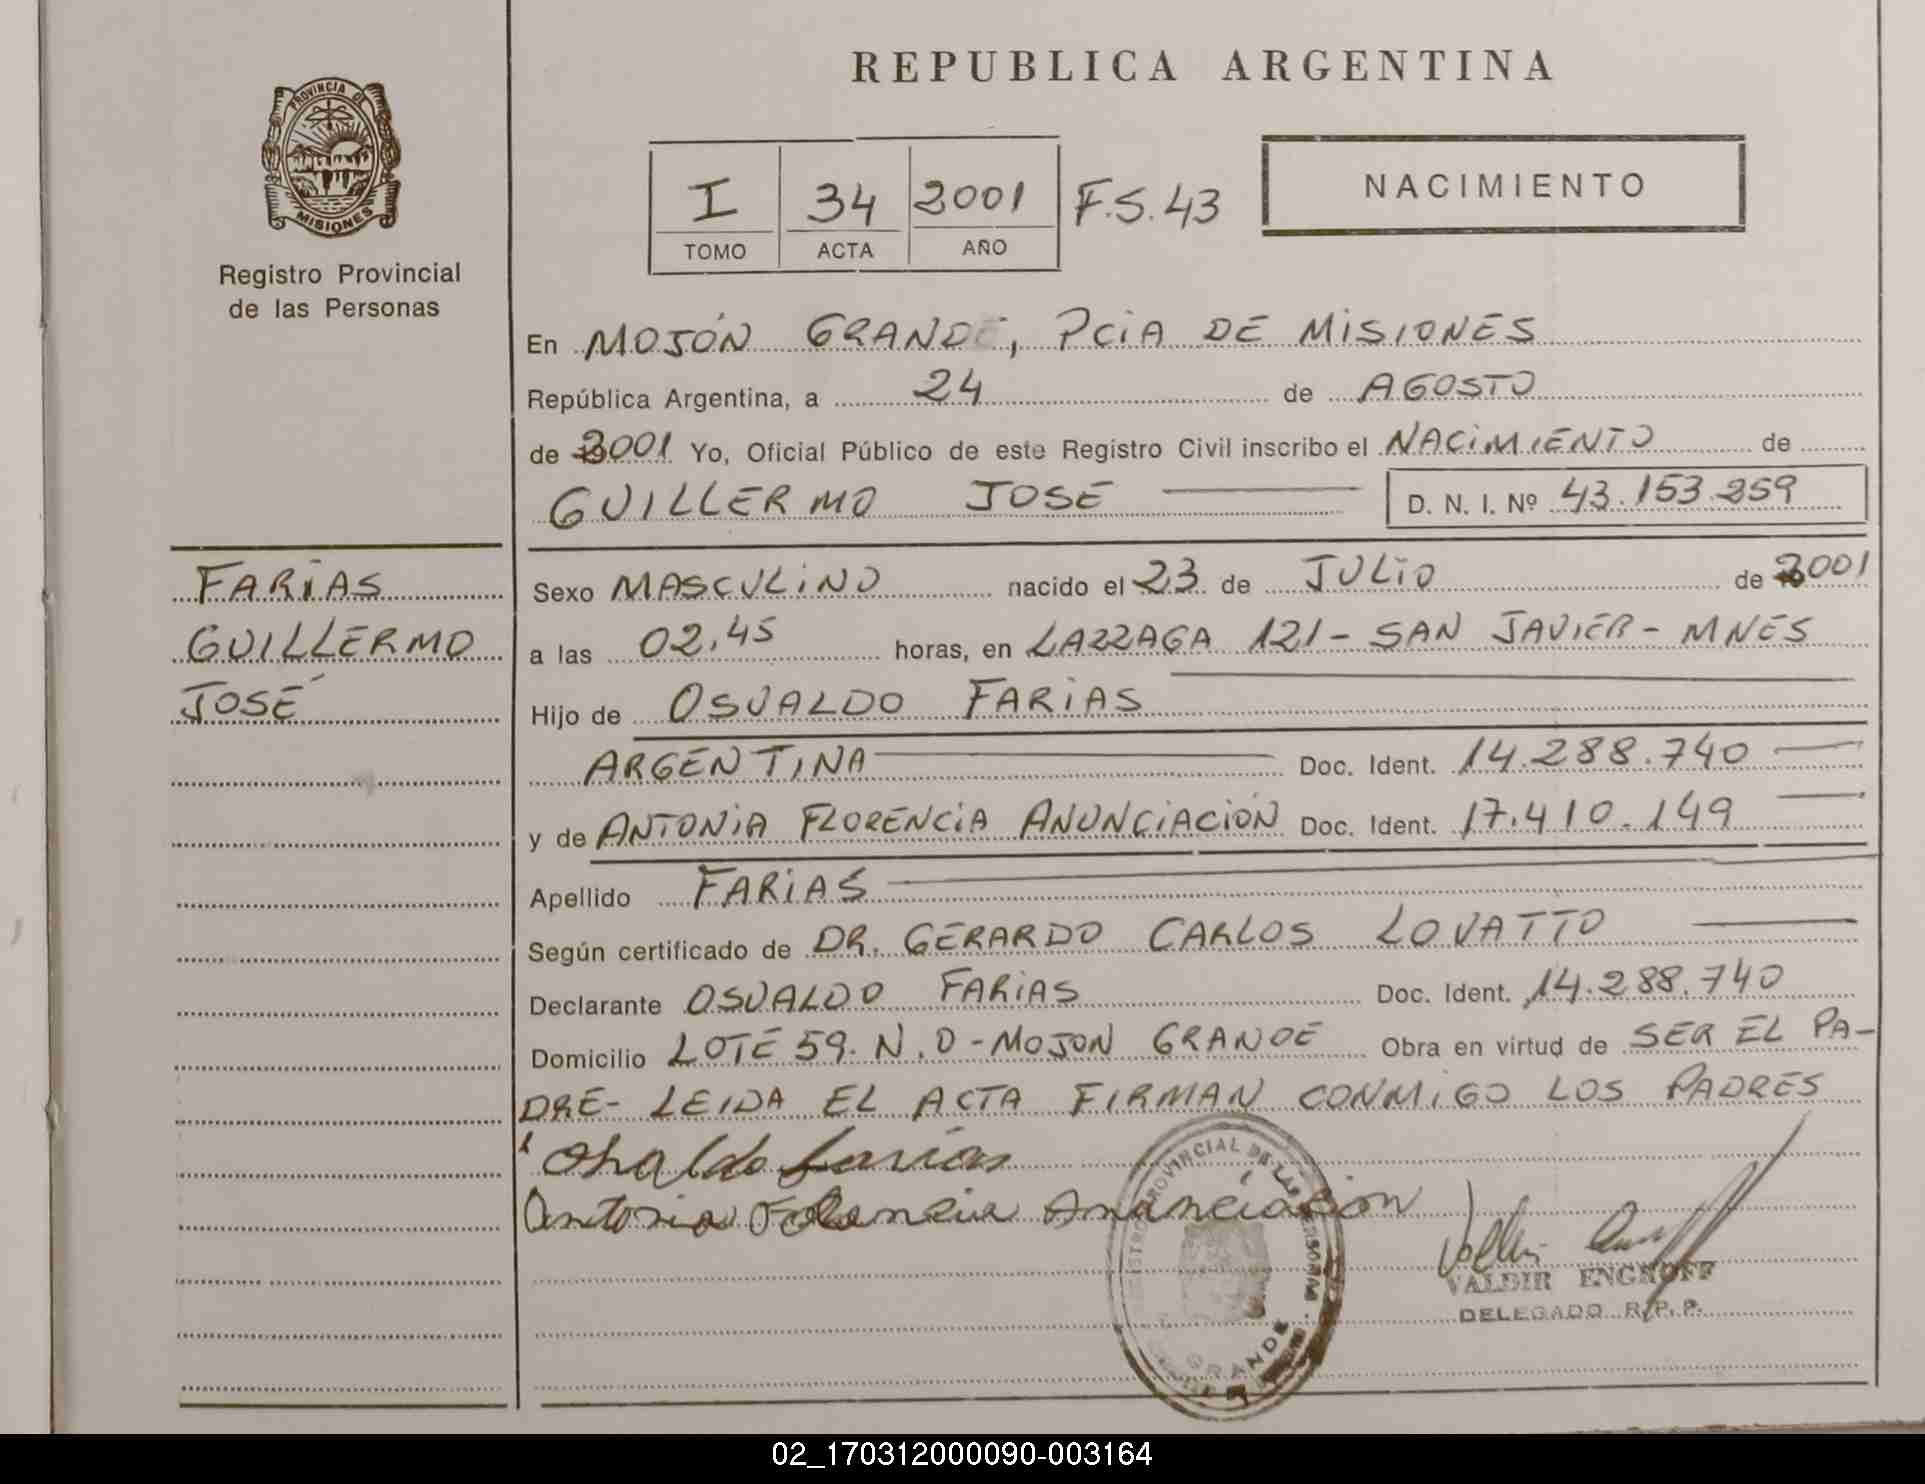 REPUBLICA ARGENTINA
PROVINCIA DE
MISIONES
Registro Provincial
de las Personas
I 34 2001 F.S. 43
TOMO ACTA AÑO
NACIMIENTO
En MOJÓN GRANDE, PCIA DE MISIONES
República Argentina, a 24 de AGOSTO
de 2001 Yo, Oficial Público de este Registro Civil inscribo el NACIMIENTO de
GUILLERMO JOSE D. N. I. Nº 43.153.259
FARIAS
GUILLERMO
JOSÉ
Sexo MASCULINO nacido el 23 de JULIO de 2001
a las 02,45 horas, en LAZZAGA 121 - SAN JAVIER - MNES
Hijo de OSVALDO FARIAS
ARGENTINA Doc. Ident. 14.288.740
y de ANTONIA FLORENCIA ANUNCIACIÓN Doc. Ident. 17.410.149
Apellido FARIAS
Según certificado de DR. GERARDO CARLOS LOVATTO
Declarante OSVALDO FARIAS Doc. Ident. 14.288.740
Domicilio LOTE 59. N.O - MOJON GRANDE Obra en virtud de SER EL PA-
DRE - LEIDA EL ACTA FIRMAN CONMIGO LOS PADRES
Osvaldo Farias
Antonia Folencia Anunciación
PROVINCIAL DE LAS PERSONAS
GRANDE
VALDIR ENGROFF
DELEGADO R.P.P.
02_170312000090-003164